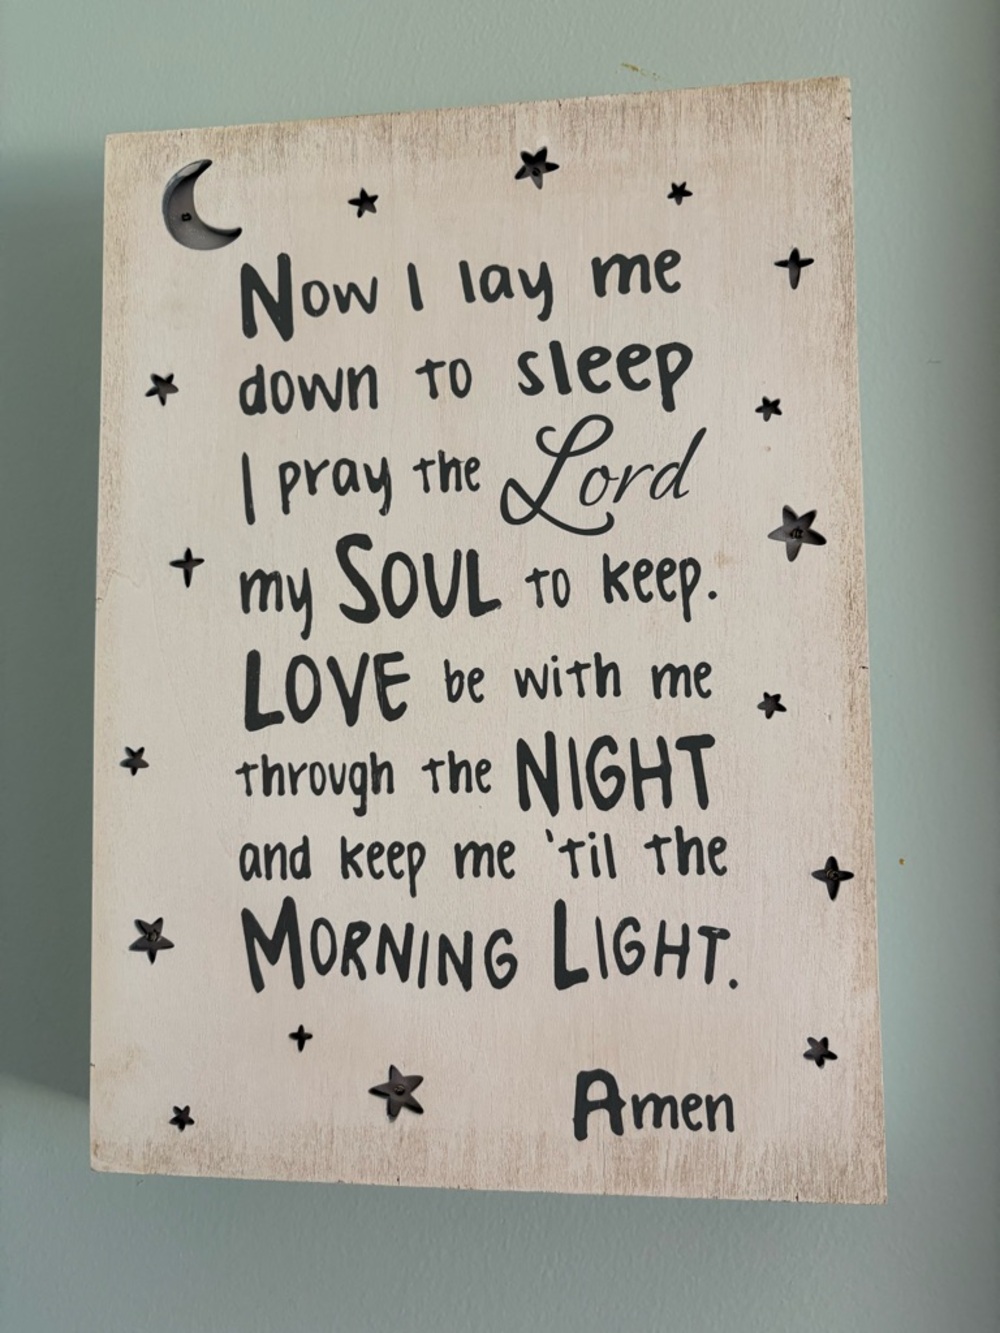 Now I lay me
down to sleep
I pray the Lord
my SOUL to keep.
LOVE be with me
through the NIGHT
and keep me 'til the
MORNING LIGHT.
Amen